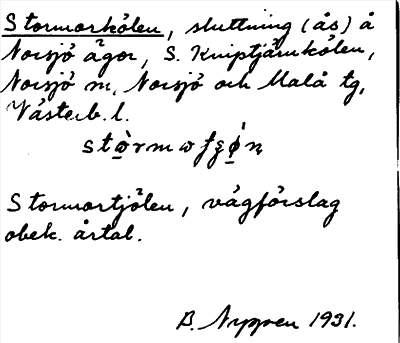 Stormorkölen, sluttning (ås) å
Norsjö ägor, S. Kniptjärnkölen,
Norsjö sn, Norsjö och Malå tg,
Västerb. l.
Stormortjölen, vägförslag
obek. årtal.
B. Nyppen 1931.